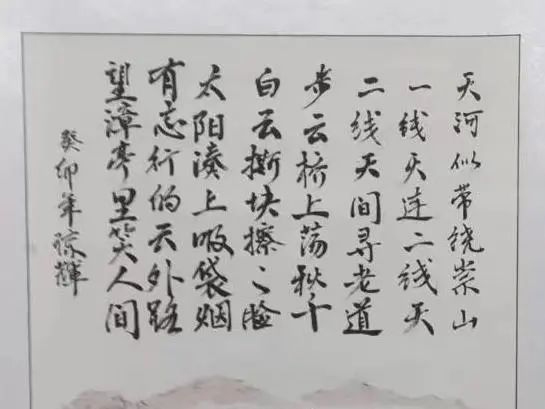 天河似带绕崇山
一线天连二线天
二线天间寻老道
步云桥上荡秋千
白云撕块擦擦脸
太阳凑上吸袋烟
有志行的天外路
望漳亭里笑人间
癸卯年 辉